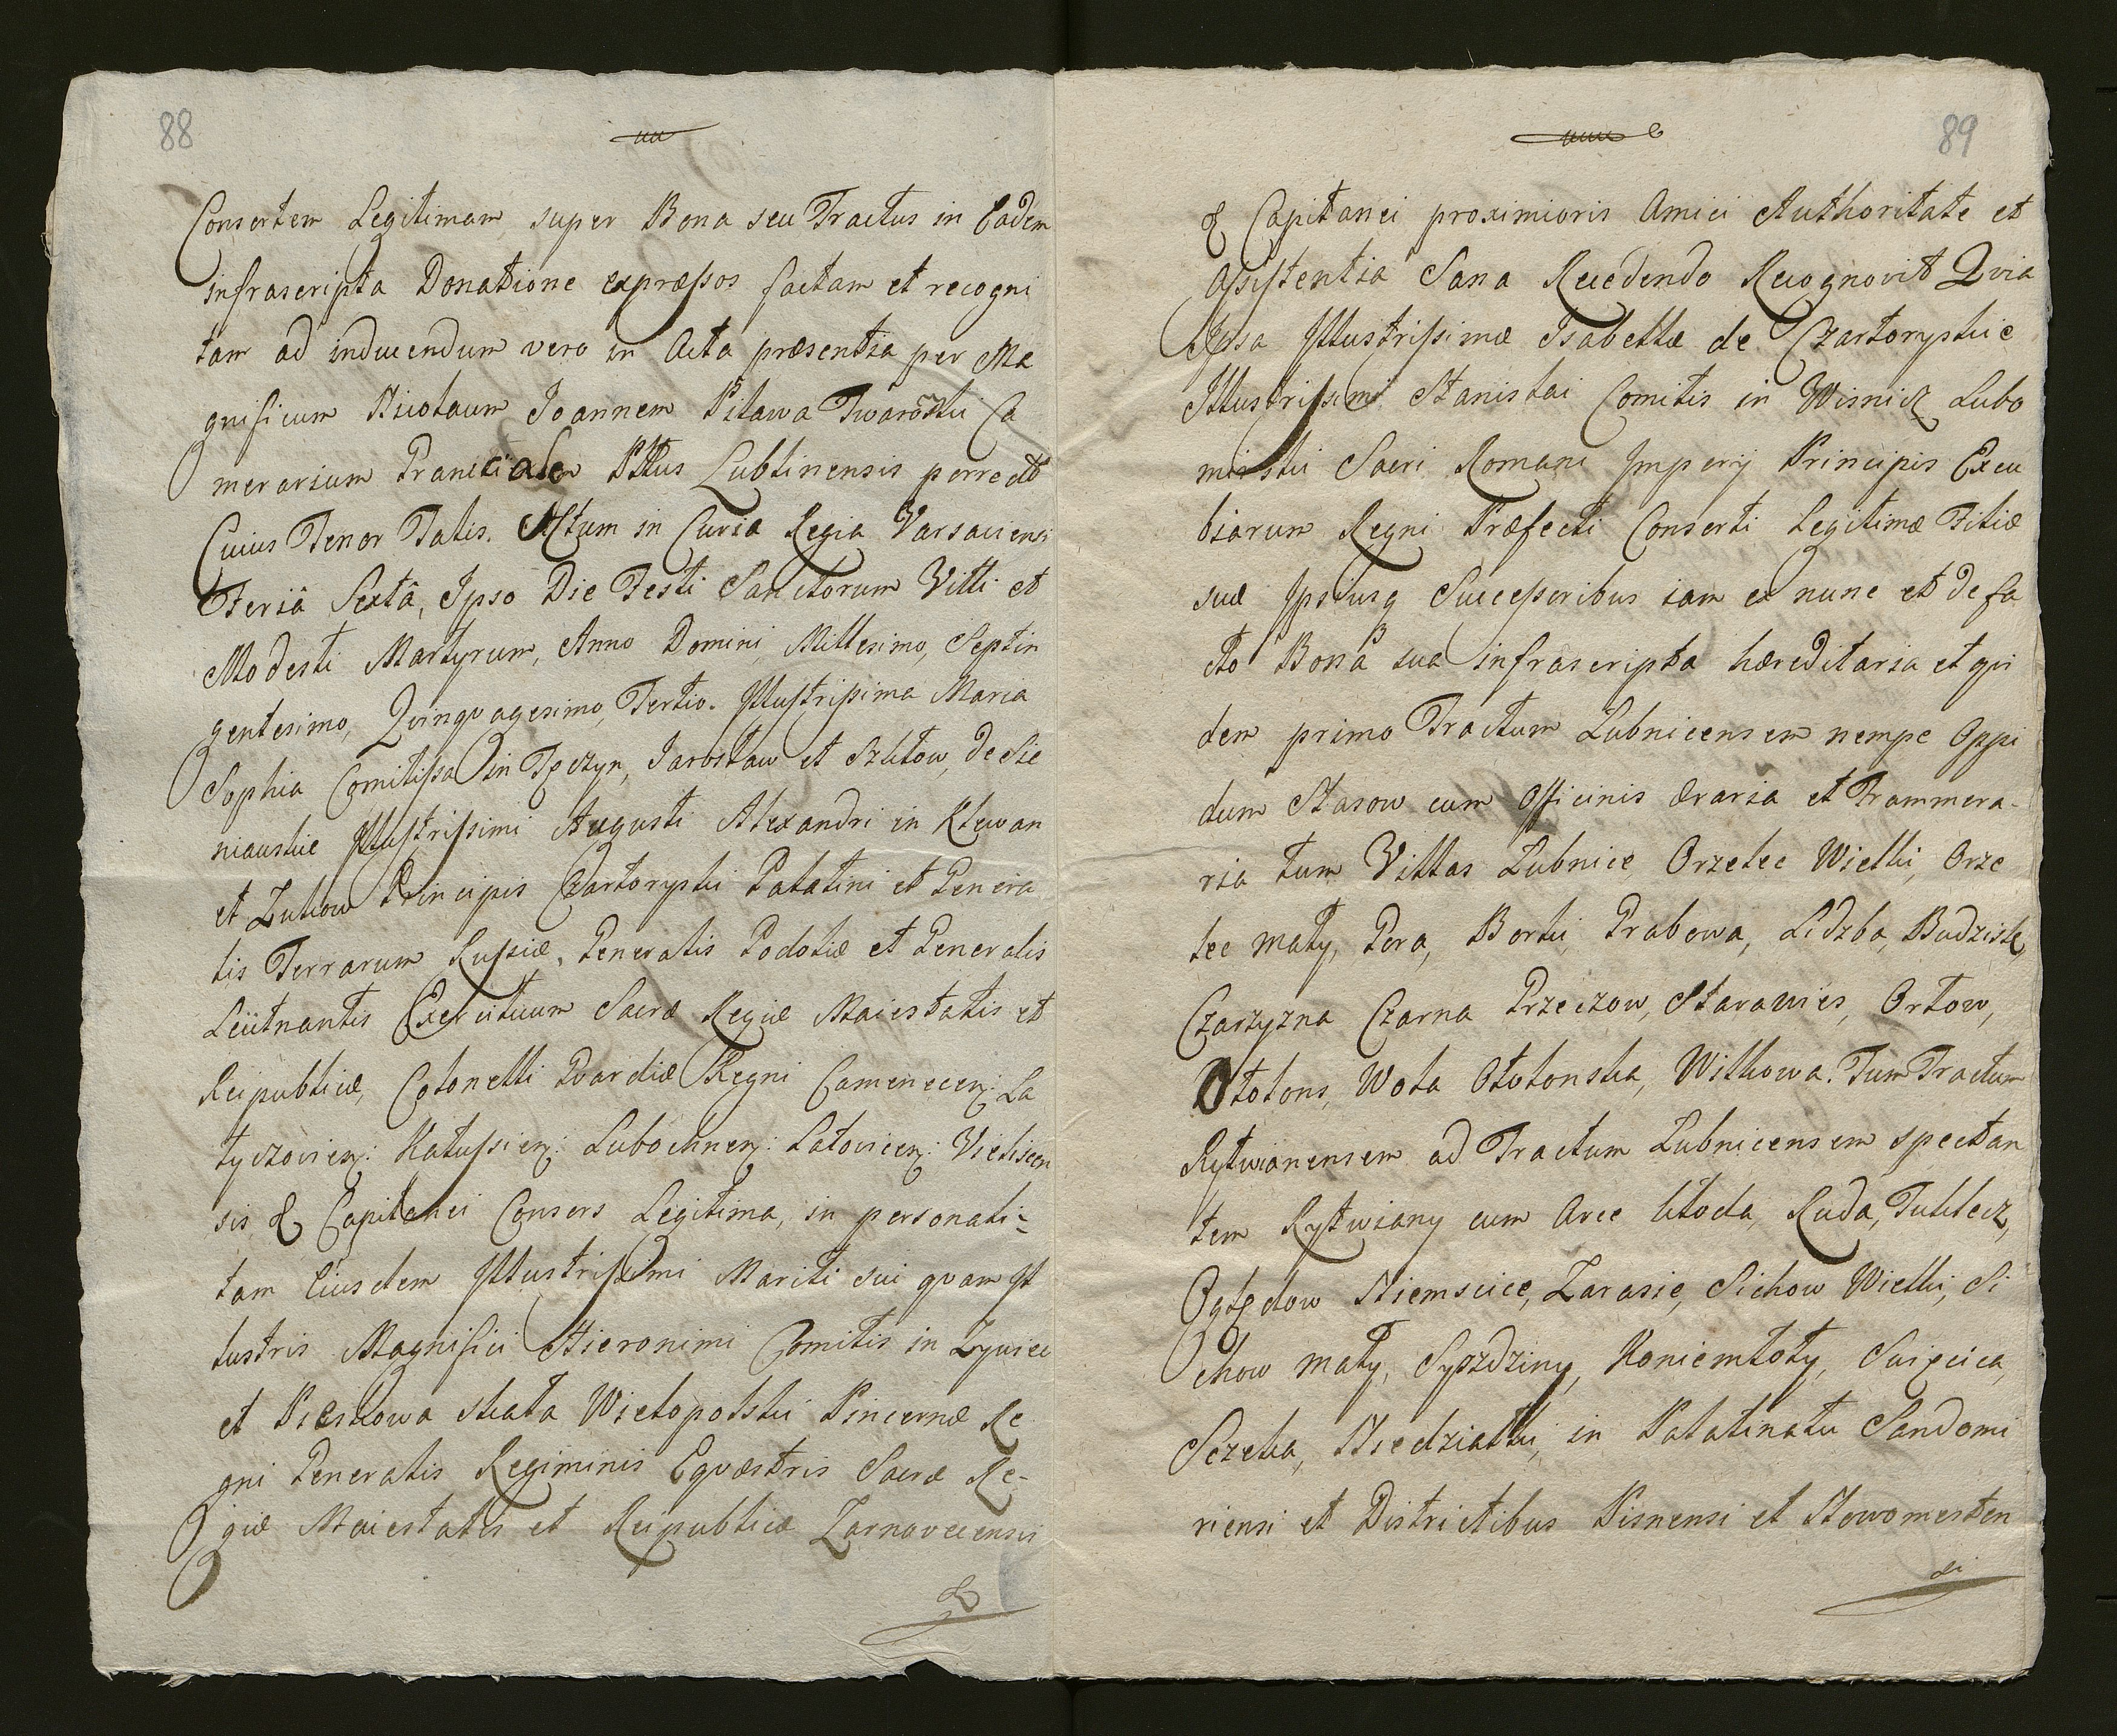 88
Consortem Legitimam, super Bona seu Tractus in Eadem
infrascripta Donatione expræssos factam et recogni
tam ad inducendum vero in Acta præsentia per Ma
gnificum Nicolaum Joannem Pilawa Twarowski Ca
merarium Granicialem Pttus Lublinensis porrectt
Cuius Tenor Talis. Actum in Curia Regia Varsaviensi
Feria Sexta, Ipso Die Festi Sanctorum Vitti et
Modesti Martyrum, Anno Domini, Millesimo, Septin
gentesimo, Qvinqvagesimo, Tertio. Illustrissima Maria
Sophia Comitissa in Tęczyn, Jarosław et Szkłow, de Sie
niawskie Illustrissimi Augusti Alexandri in Klewan
et Zukow Principis Czartoryski Palatini et Genera
lis Terrarum Russiæ, Generalis Podoliæ et Generalis
Leütnantis Exercituum Sacræ Regiæ Maiestatis et
Reipublicæ, Colonelli Gvardiæ Regni Camenecen: La
tyczovien: Kalussien: Lubochnen: Latovicen: Vielicen
sis & Capitanei Consors Legitima, in personali-
tam Eiusdem Illustrissimi Mariti sui qvam Il
lustris Magnifici Hieronimi Comitis in Zywiec
et Pieskowa skała Wielopolski Pincernæ Re
gni Generalis Regiminis Eqvæstris Sacræ Re-
giæ Maiestatis et Reipublicæ Zarnovecensis
&
89
& Capitanei proximioris Amici Authoritate et
Assistentia Sana Recedendo Recognovit Qvia
Ipsa Illustrissimæ Isabellæ de Czartoryskie
Illustrissimi Stanislai Comitis in Wisnicz Lubo
mirski Sacri Romani Imperij Principis Excu
biarum Regni Præfecti Consorti Legitimæ Filiæ
suæ Ipsiusq Successoribus iam ex nunc et de fa
cto Bona sua infrascripta hæreditaria et qvi
dem primo Tractum Lubnicensem nempe Oppi
dum Stasow cum Officinis æraria et Frammera-
ria tum Villas Łubnice, Orzelec Wielki, Orze
lec mały, Gora, Borki, Grabowa, Lidzba, Budziska,
Czarzyzna Czarna Przeczow, Starawies, Orłow,
Ołołons, Wola Ołołonska, Witkowa. Tum Tractum
Rytwianensem ad Tractum Lubnicensem spectan
tem Rytwiany cum Arce Kłoda, Ruda, Tuklecz,
Oględow Niemscice, Zarasie, Sichow Wielki, Si
chow mały, Sypzdziny, Koniemłoty, Swięcica,
Sczeka, Niedziałki, in Palatinatu Sandomi
riensi et Districtibus Pisnensi et Novomesten
si